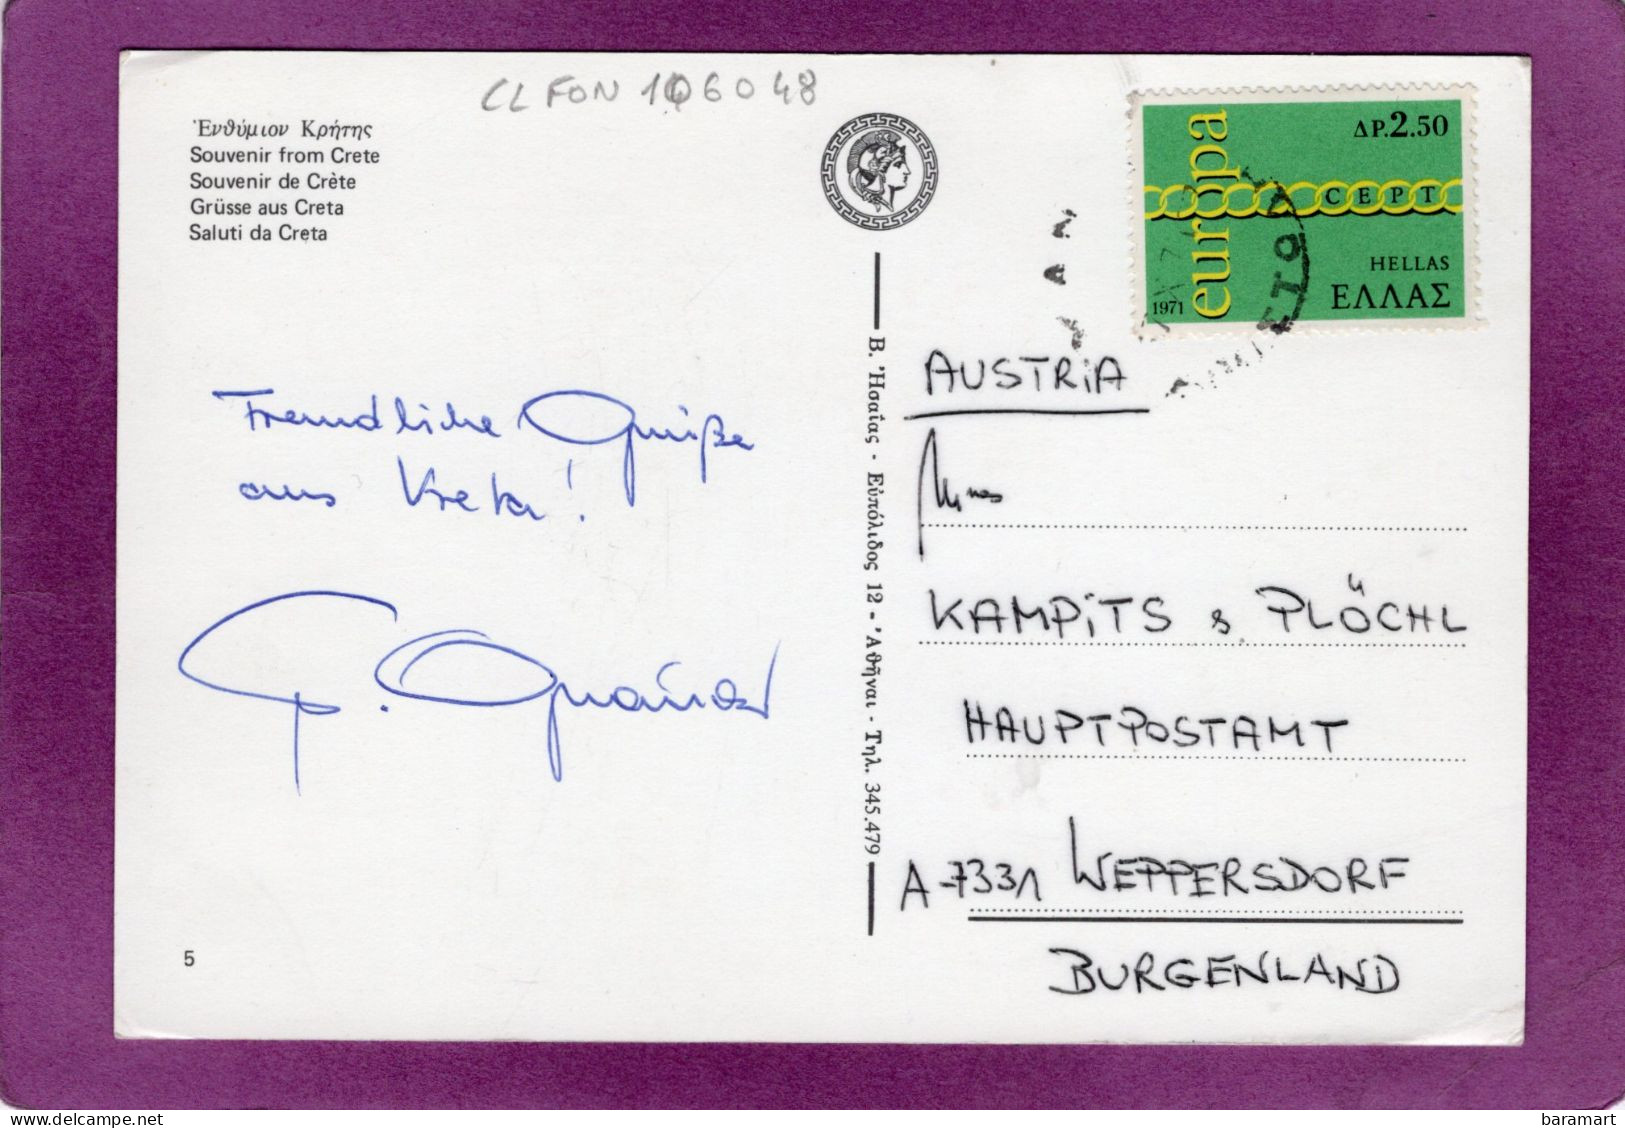 CL FON 106048
Ἐνθύμιον Κρήτης
Souvenir from Crete
Souvenir de Crète
Grüsse aus Creta
Saluti da Creta
Freundliche Grüße
aus Kreta!
5
Β. Ἡσαΐας - Εὐπόλιδος 12 - Ἀθῆναι - Τηλ. 345.479
europa
ΔΡ.2.50
CEPT
HELLAS
ΕΛΛΑΣ
1971
AUSTRIA
KAMPITS & PLÖCHL
HAUPTPOSTAMT
A-7331 WEPPERSDORF
BURGENLAND
delcampe.net
baramart